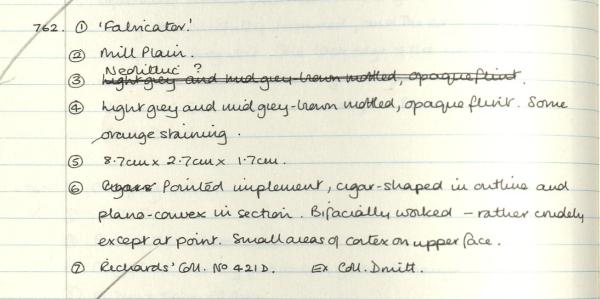 762. ① 'Fabricator.'
② Mill Plain.
Neolithic ?
③ light grey and mid grey-brown mottled, opaque flint.
④ Light grey and mid grey-brown mottled, opaque flint. Some
orange staining.
⑤ 8.7cm x 2.7cm x 1.7cm.
⑥ Cigars Pointed implement, cigar-shaped in outline and
plano-convex in section. Bifacially worked - rather crudely
except at point. Small areas of cortex on upper face.
⑦ Richards' Coll. No 421D. Ex Coll. Dmitt.